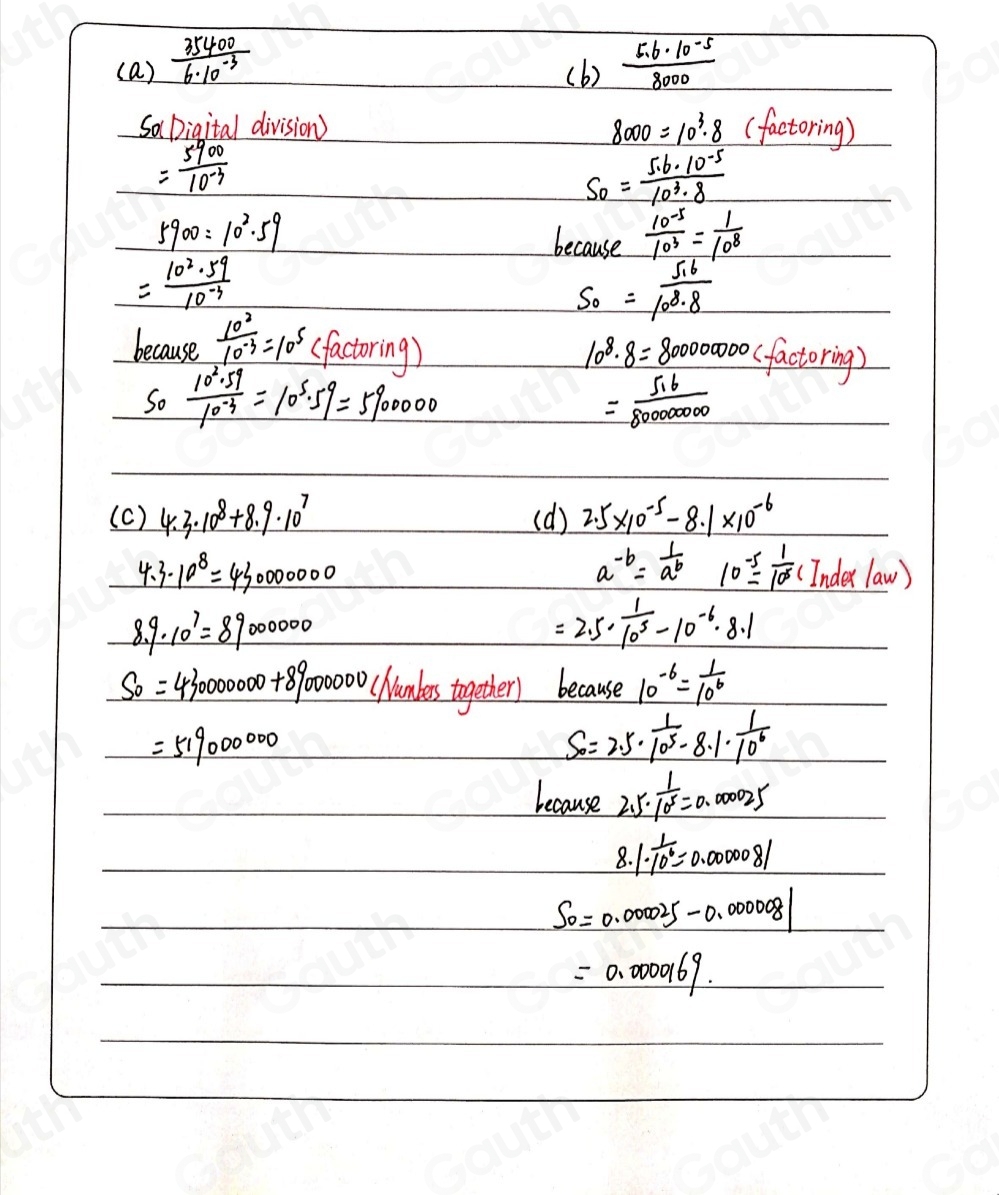 (a) 35400/6·10^-3
So (Digital division)
= 5900/10^-3
5900 = 10^2·59
= 10^2·59/10^-3
because 10^2/10^-3 = 10^5 (factoring)
So 10^2·59/10^-3 = 10^5·59 = 5900000
(b) 5.6·10^-5/8000
8000 = 10^3·8 (factoring)
So = 5.6·10^-5/10^3·8
because 10^-5/10^3 = 1/10^8
So = 5.6/10^8·8
10^8·8 = 800000000 (factoring)
= 5.6/800000000
(C) 4.3·10^8+8.9·10^7
4.3·10^8 = 430000000
8.9·10^7 = 89000000
So = 430000000+89000000 (Numbers together)
= 519000000
(d) 2.5×10^-5 - 8.1×10^-6
a^-b = 1/a^b 10^-5 = 1/10^5 (Index law)
= 2.5·1/10^5 - 10^-6·8.1
because 10^-6 = 1/10^6
So = 2.5·1/10^5 - 8.1·1/10^6
because 2.5·1/10^5 = 0.000025
8.1·1/10^6 = 0.0000081
So = 0.000025 - 0.0000081
= 0.0000169.
Gauth